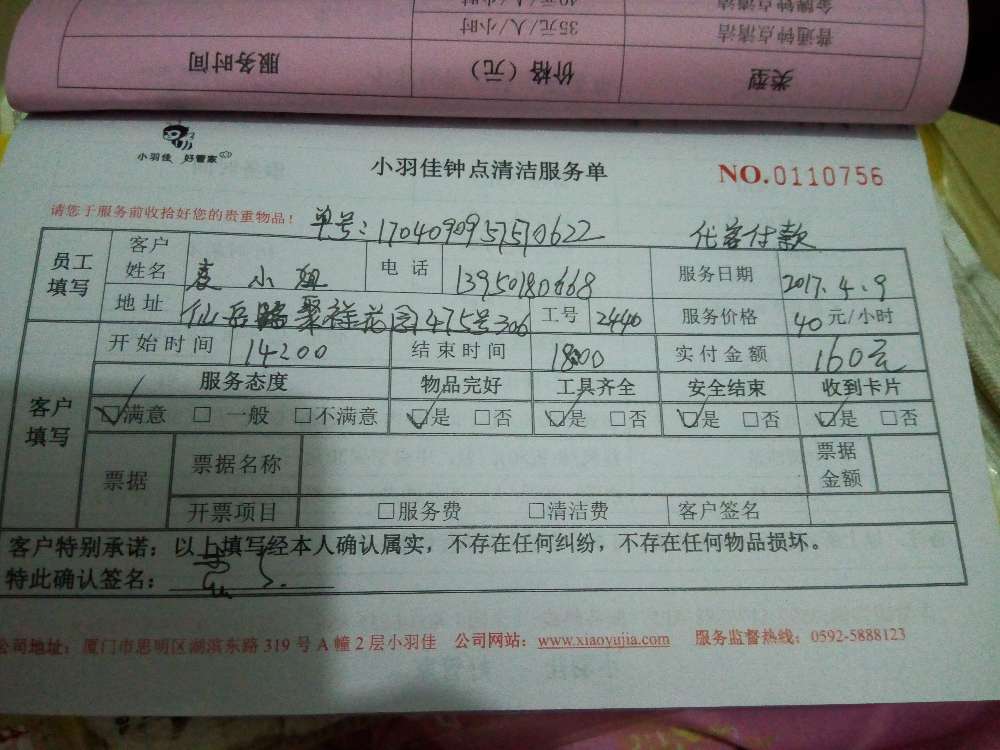 金牌钟点清洁 40元/人/小时
普通钟点清洁 35元/人/小时
类型 价格（元） 服务时间
小羽佳 好管家
小羽佳钟点清洁服务单
NO.0110756
请您于服务前收拾好您的贵重物品！
单号：1704090957510622 代客付款
员工填写 客户姓名 袁小姐 电话 13950180668 服务日期 2017.4.9
地址 仙岳路聚祥花园475号306 工号 2440 服务价格 40元/小时
客户填写 开始时间 14:00 结束时间 18:00 实付金额 160元
服务态度 物品完好 工具齐全 安全结束 收到卡片
☑满意 □一般 □不满意 ☑是 □否 ☑是 □否 ☑是 □否 ☑是 □否
票据 票据名称 票据金额
开票项目 □服务费 □清洁费 客户签名
客户特别承诺：以上填写经本人确认属实，不存在任何纠纷，不存在任何物品损坏。
特此确认签名：
公司地址：厦门市思明区湖滨东路319号A幢2层小羽佳 公司网站：www.xiaoyujia.com 服务监督热线：0592-5888123